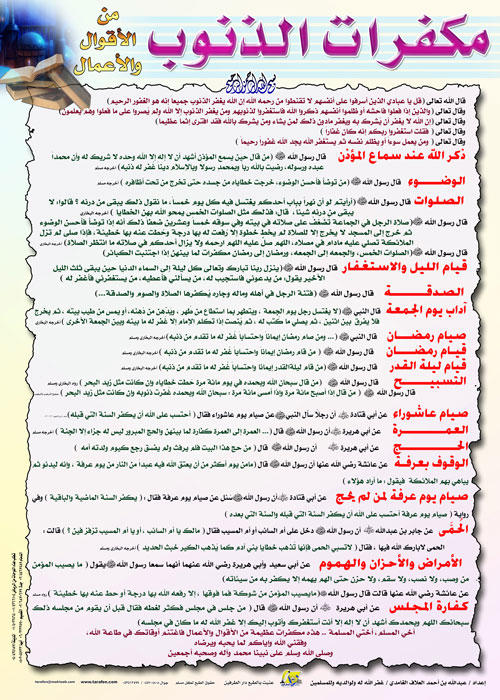 مكفرات الذنوب
من
الأقوال
والأعمال
قال الله تعالى (قل يا عبادي الذين أسرفوا على أنفسهم لا تقنطوا من رحمة الله إن الله يغفر الذنوب جميعا إنه هو الغفور الرحيم)
وقال تعالى (والذين إذا فعلوا فاحشة أو ظلموا أنفسهم ذكروا الله فاستغفروا لذنوبهم ومن يغفر الذنوب إلا الله ولم يصروا على ما فعلوا وهم يعلمون)
وقال تعالى (إن الله لا يغفر أن يشرك به ويغفر مادون ذلك لمن يشاء ومن يشرك بالله فقد افترى إثما عظيما)
وقال تعالى ( فقلت استغفروا ربكم إنه كان غفارا )
وقال تعالى ( ومن يعمل سوءا أو يظلم نفسه ثم يستغفر الله يجد الله غفورا رحيما )
ذكر الله عند سماع المؤذن قال رسول الله ﷺ (من قال حين يسمع المؤذن أشهد أن لا إله إلا الله وحده لا شريك له وأن محمداً
عبده ورسوله، رضيت بالله ربا وبمحمد رسولا وبالإسلام دينا غفر له ذنبه) اخرجه مسلم
الوضــوء قال رسول الله ﷺ (من توضأ فأحسن الوضوء، خرجت خطاياه من جسده حتى تخرج من تحت أظافره ) اخرجه مسلم
الصلوات قال رسول الله ﷺ (أرأيتم لو أن نهراً بباب أحدكم يغتسل فيه كل يوم خمسا، ما تقول ذلك يبقى من درنه؟ قالوا: لا
يبقى من درنه شيئا، قال: فذلك مثل الصلوات الخمس يمحو الله بهن الخطايا)
قال رسول الله ﷺ (صلاة الرجل في الجماعة تضعف على صلاته في بيته وفي سوقه خمسا وعشرين ضعفا ذلك أنه إذا توضأ فأحسن الوضوء
ثم خرج إلى المسجد لا يخرجه إلا للصلاة لم يخط خطوة إلا رفعت له بها درجة وحطت عنه بها خطيئة، فإذا صلى لم تزل
الملائكة تصلي عليه مادام في مصلاه، اللهم صل عليه اللهم ارحمه ولا يزال أحدكم في صلاته ما انتظر الصلاة)
قال رسول الله ﷺ (الصلوات الخمس، والجمعه إلى الجمعه، ورمضان إلى رمضان مكفرات لما بينهن إذا اجتنبت الكبائر)
قيام الليل والاستغفار قال رسول الله ﷺ (ينزل ربنا تبارك وتعالى كل ليلة إلى السماء الدنيا حين يبقى ثلث الليل
الأخير يقول: من يدعوني فأستجيب له، من يسألني فأعطيه، من يستغفرني فأغفر له )
الصدقــة قال رسول الله ﷺ (فتنة الرجل في أهله وماله وجاره يكفرها الصلاة والصوم والصدقة...)
آداب يوم الجمعة قال النبي ﷺ (لا يغتسل رجل يوم الجمعة ، ويتطهر بما استطاع من طهر ، ويدهن من دهنه، أو يمس من طيب بيته ، ثم يخرج
فلا يفرق بين اثنين ، ثم يصلي ما كتب له ، ثم ينصت إذا تكلم الإمام إلا غفر له ما بينه وبين الجمعة الأخرى)
صيام رمضان قال النبي ﷺ ( ... ومن صام رمضان إيمانا واحتسابا غفر له ما تقدم من ذنبه)
قيام رمضان قال رسول الله ﷺ (من قام رمضان إيمانا واحتسابا غفر له ما تقدم من ذنبه)
قيام ليلة القدر قال رسول الله ﷺ (من قام ليلة القدر إيمانا واحتسابا غفر له ما تقدم من ذنبه)
التسبيــح قال رسول الله ﷺ (من قال سبحان الله وبحمده في يوم مائة مرة حطت خطاياه وإن كانت مثل زبد البحر )
قال رسول الله ﷺ (من قال إذا أصبح مائة مرة وإذا أمسى مائة مرة ، سبحان الله وبحمده غفرت ذنوبه وإن كانت مثل زبد البحر )
صيام عاشوراء عن أبي قتادة أن رجلاً سأل النبي ﷺ عن صيام يوم عاشوراء فقال ( أحتسب على الله أن يكفر السنة التي قبله)
العمــرة عن أبي هريرة أن رسول الله ﷺ قال (... العمرة إلى العمرة كفارة لما بينهن والحج المبرور ليس له جزاء إلا الجنة )
الحــج عن أبي هريرة أن رسول الله ﷺ قال ( من حج هذا البيت فلم يرفث ولم يفسق رجع كيوم ولدته أمه )
الوقوف بعرفة عن عائشة رضي الله عنها أن رسول الله ﷺ قال (مامن يوم أكثر من أن يعتق الله فيه عبدا من النار من يوم عرفة ، وإنه ليدنو ثم
يباهي بهم الملائكة فيقول: ما أراد هؤلاء )
صيام يوم عرفة لمن لم يحج عن أبي قتادة أن رسول الله ﷺ سئل عن صيام يوم عرفة فقال: ( يكفر السنة الماضية والباقية ) وفي
رواية ( صيام يوم عرفة أحتسب على الله أن يكفر السنة التي قبله والسنة التي بعده )
الحمَّى عن جابر بن عبدالله أن رسول الله ﷺ دخل على أم السائب أو أم المسيب فقال ( مالك يا أم السائب ، أو يا أم المسيب تزفزفين ؟ ) قالت :
الحمى لابارك الله فيها ، فقال ( لاتسبي الحمى فإنها تذهب خطايا بني آدم كما يذهب الكير خبث الحديد )
الأمراض والأحزان والهموم عن أبي سعيد وأبي هريرة رضي الله عنهما أنهما سمعا رسول الله ﷺ يقول ( ما يصيب المؤمن
من وصب، ولا نصب، ولا سقم، ولا حزن حتى الهم يهمه إلا يكفر به من سيئاته)
عن عائشة رضي الله عنها قالت قال رسول الله ﷺ (مايصيب المؤمن من شوكة فما فوقها ، إلا رفعه الله بها درجة أو حط عنه بها خطيئة )
كفارة المجلس عن أبي هريرة أن رسول الله ﷺ قال ( من جلس في مجلس فكثر لغطه فقال قبل أن يقوم من مجلسه ذلك
سبحانك اللهم وبحمدك أشهد أن لا إله إلا أنت أستغفرك وأتوب إليك إلا غفر له ما كان في مجلسه )
أخي المسلم ، أختي المسلمة .. هذه مكفرات عظيمة من الأقوال والأعمال فاغتنم أوقاتك في طاعة الله،
وفقني الله وإياكم لما يحبه ويرضاه
وصلى الله وسلم على نبينا محمد وآله وصحبه أجمعين
إعداد / عبدالله بن أحمد العلاف الغامدي / غفر الله له ولوالديه وللمسلمين
www.tarafen.com